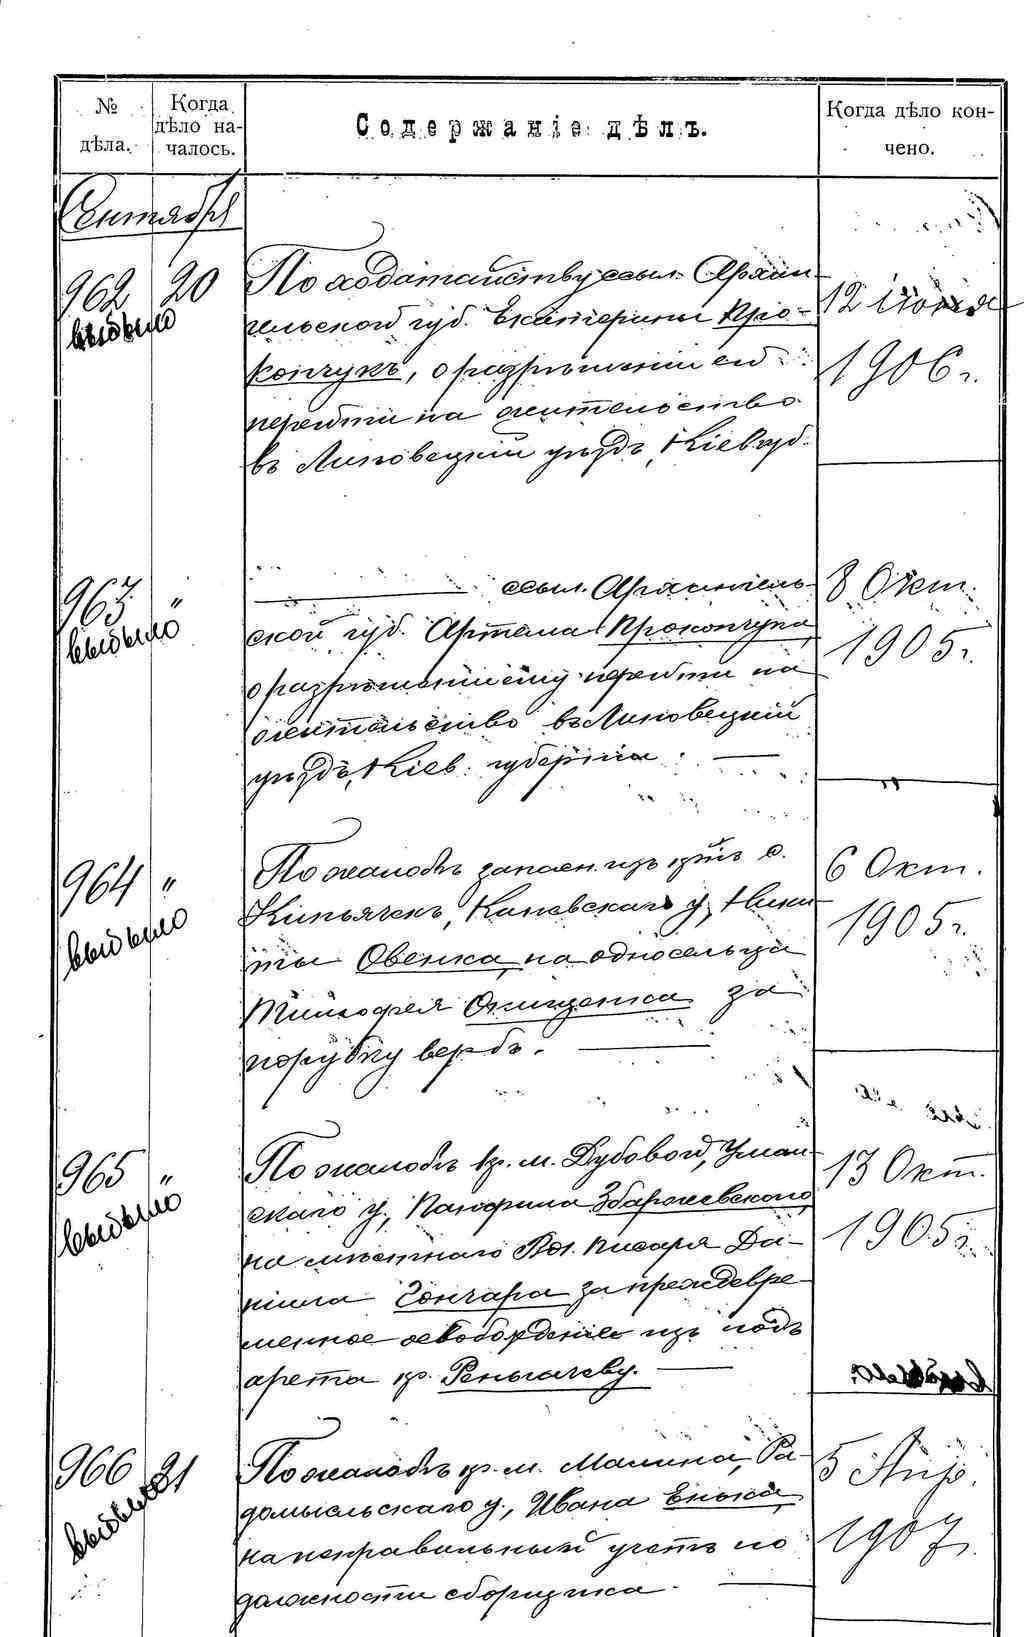 № дѣла.
Когда дѣло началось.
Содержаніе дѣлъ.
Когда дѣло кончено.
Сентября
962 20
выбыло
По ходатайству ссыл. Архан-
гельской губ. Екатерины Про-
кончукъ, о разрѣшеніи ей
перейти на жительство
въ Липовецкій уѣздъ, Кіев. губ.
12 Іюня
1906 г.
963 "
выбыло
ссыл. Архангель-
ской губ. Артема Прокончука,
о разрѣшеніи ему перейти на
жительство въ Липовецкій
уѣздъ, Кіев. губерніи.
8 Окт.
1905 г.
964 "
выбыло
По жалобѣ запасн. изъ кр. с.
Каневскаго у, Ники-
ты Овенка, на односельца
Тимофея Онищенка за
порубку вербъ.
6 Окт.
1905 г.
965 "
выбыло
По жалобѣ кр. м. Дубовой, Уман-
скаго у., Панфила Збаржевскаго,
на мѣстнаго Вол. писаря Да-
нила Гончара за преждевре-
менное освобожденіе изъ подъ
ареста кр.
13 Окт.
1905 г.
выбыло
966 21
выбыло
По жалобѣ кр. м. Малина, Ра-
домысльскаго у., Ивана
на неправильный учетъ по
должности сборщика.
5 Апр.
1907